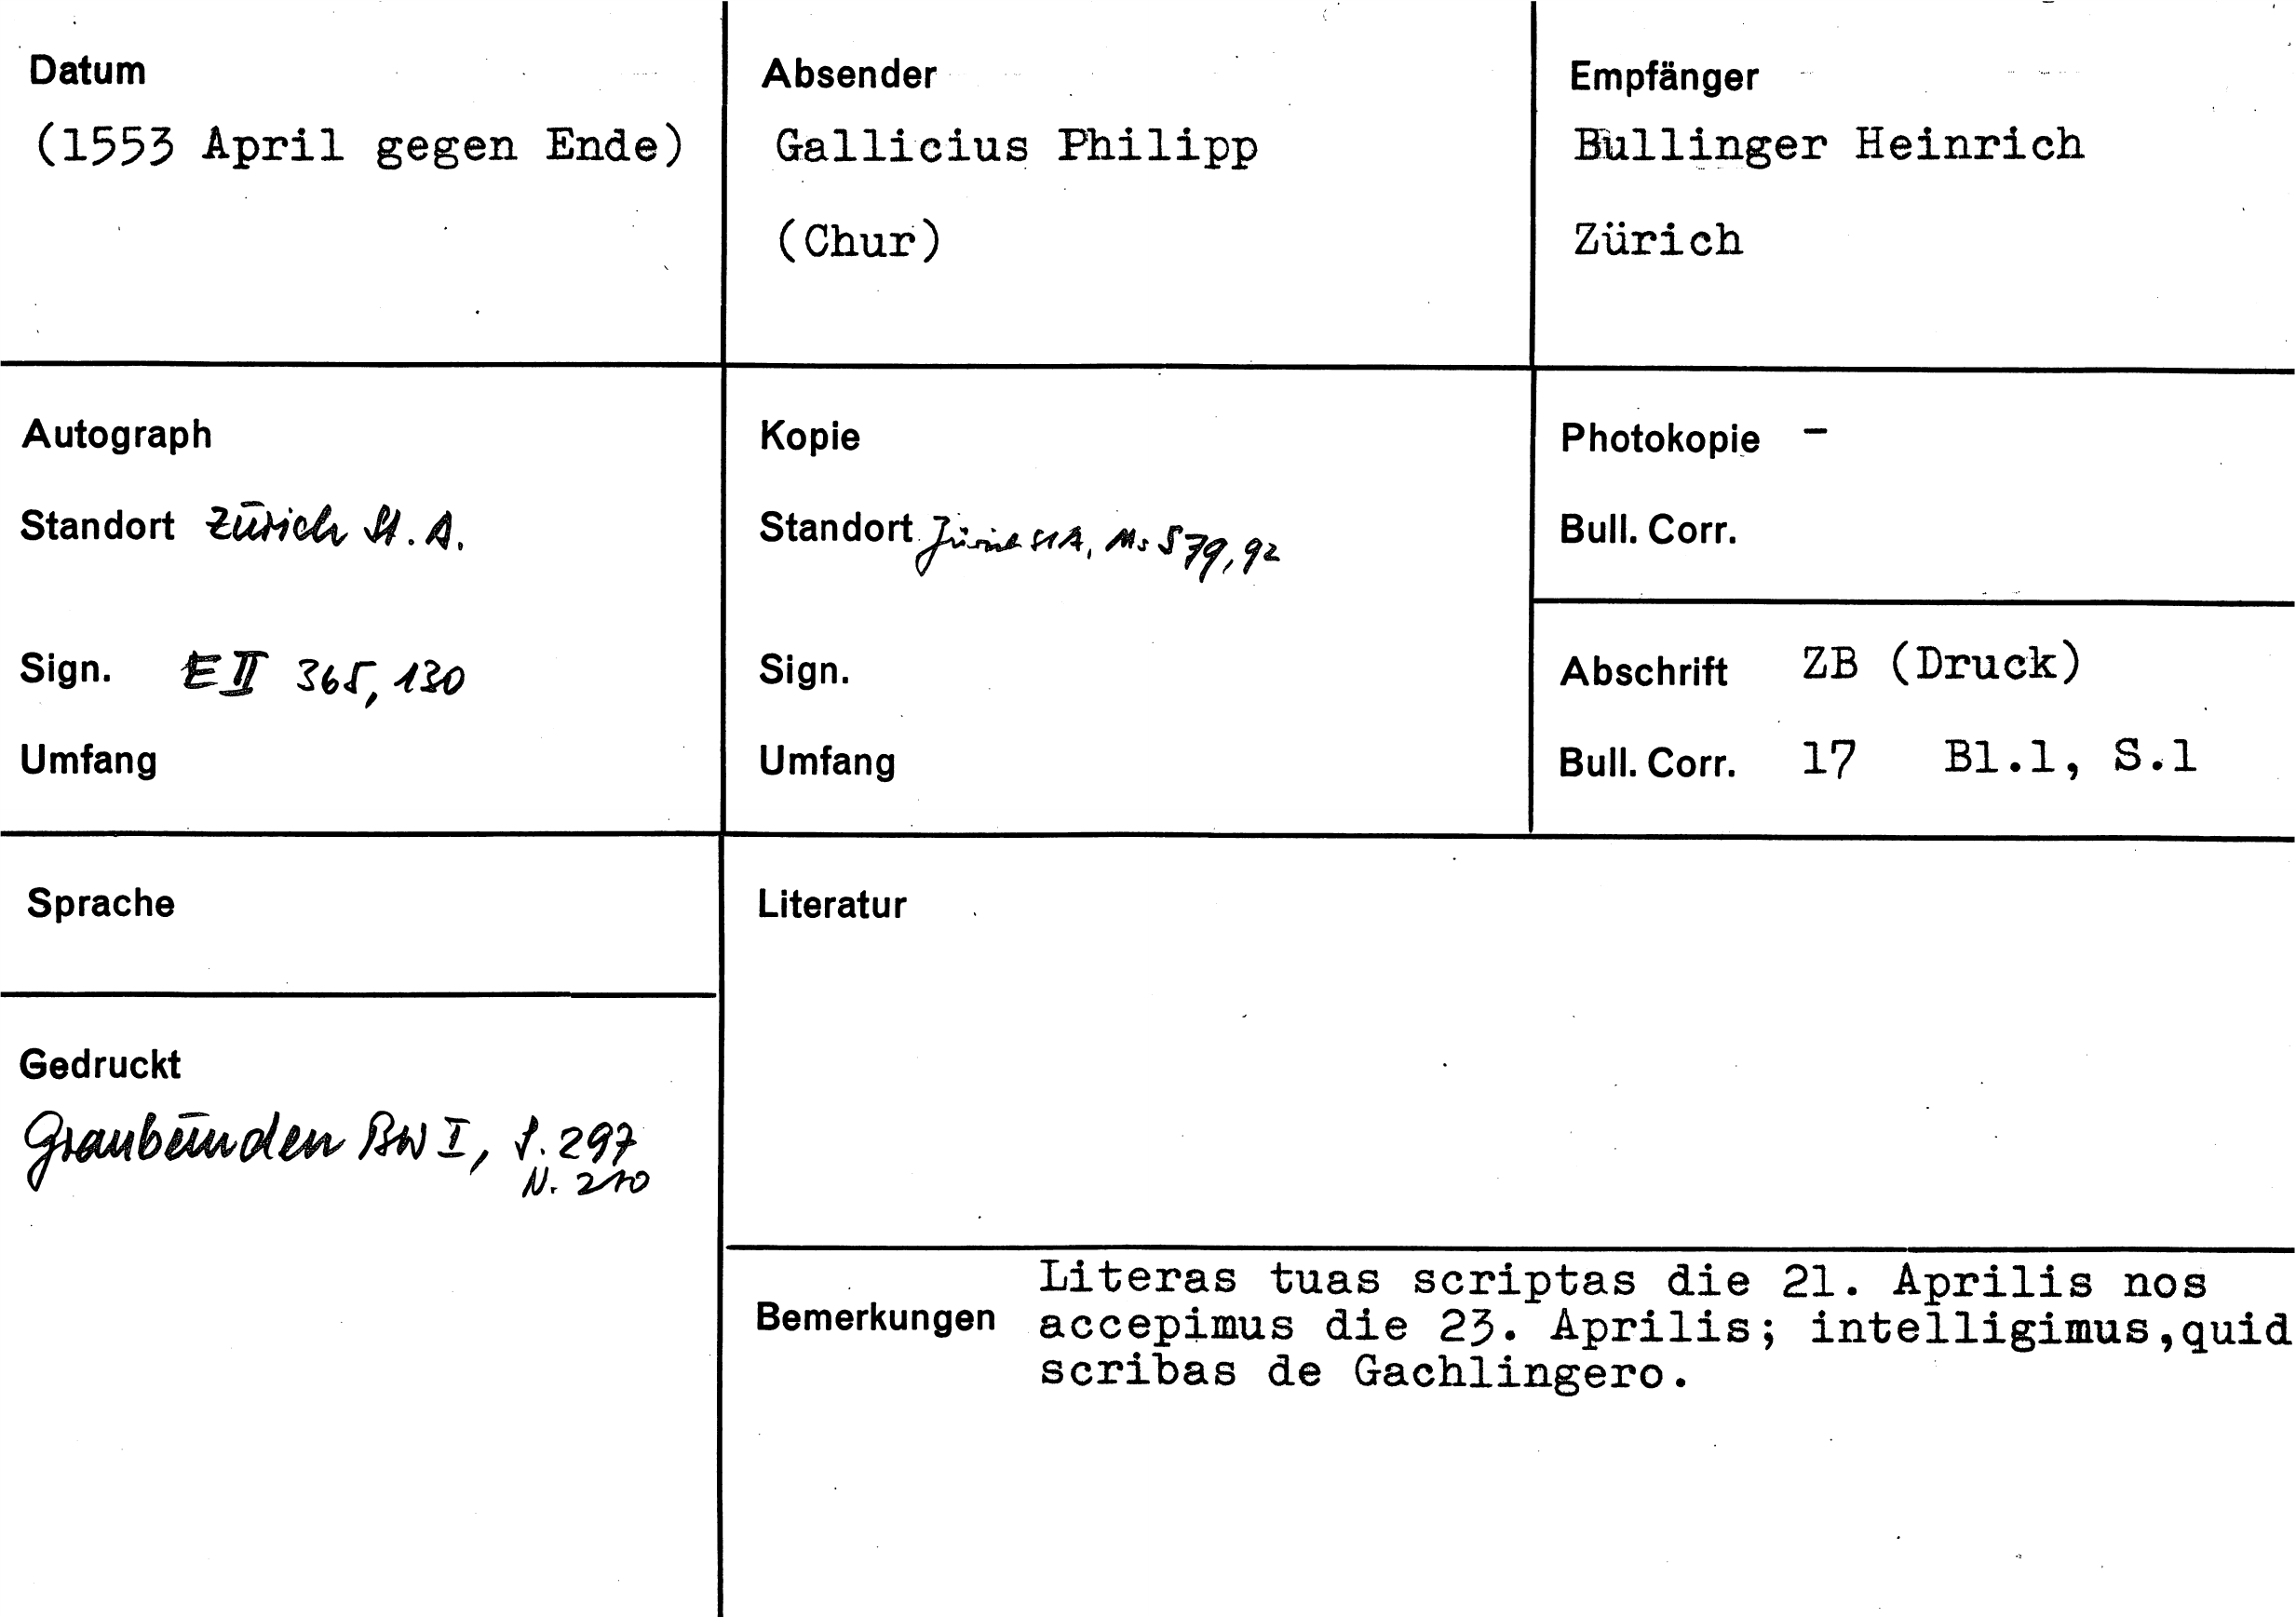 Datum
(1553 April gegen Ende)
Absender
Gallicius Philipp
(Chur)
Empfänger
Bullinger Heinrich
Zürich
Autograph
Standort Zürich St. A.
Sign. E II 365, 130
Umfang
Kopie
Standort Zürich StA, Ms S 79, 92
Sign.
Umfang
Photokopie -
Bull. Corr.
Abschrift ZB (Druck)
Bull. Corr. 17 Bl.1, S.1
Sprache
Gedruckt
Graubünden BW I, S. 297
N. 210
Literatur
Bemerkungen
Literas tuas scriptas die 21. Aprilis nos
accepimus die 23. Aprilis; intelligimus,quid
scribas de Gachlingero.